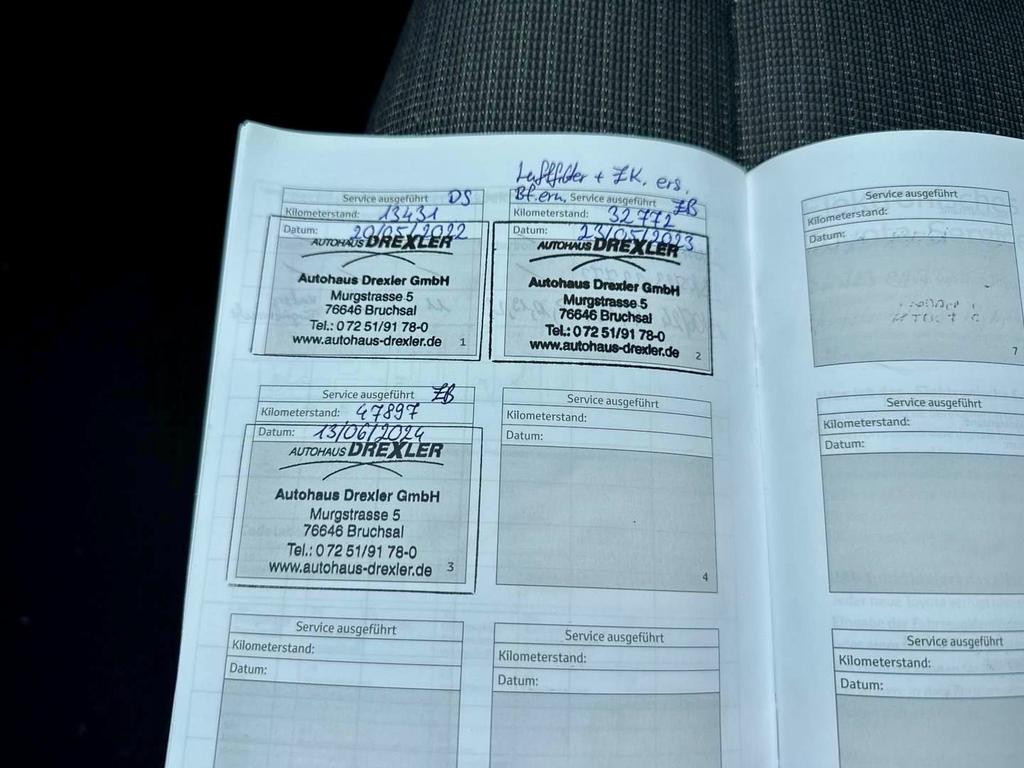 Luftfilter + ZK. ers.
Bf.ern.
Service ausgeführt DS
Kilometerstand: 13431
Datum: 20/05/2022
AUTOHAUS DREXLER
Autohaus Drexler GmbH
Murgstrasse 5
76646 Bruchsal
Tel.: 0 72 51/91 78-0
www.autohaus-drexler.de
1
Service ausgeführt ZB
Kilometerstand: 32772
Datum: 23/05/2023
AUTOHAUS DREXLER
Autohaus Drexler GmbH
Murgstrasse 5
76646 Bruchsal
Tel.: 0 72 51/91 78-0
www.autohaus-drexler.de
2
Service ausgeführt ZB
Kilometerstand: 47897
Datum: 13/06/2024
AUTOHAUS DREXLER
Autohaus Drexler GmbH
Murgstrasse 5
76646 Bruchsal
Tel.: 0 72 51/91 78-0
www.autohaus-drexler.de
3
Service ausgeführt
Kilometerstand:
Datum:
4
Service ausgeführt
Kilometerstand:
Datum:
Service ausgeführt
Kilometerstand:
Datum:
Service ausgeführt
Kilometerstand:
Datum:
7
Service ausgeführt
Kilometerstand:
Datum:
Service ausgeführt
Kilometerstand:
Datum: